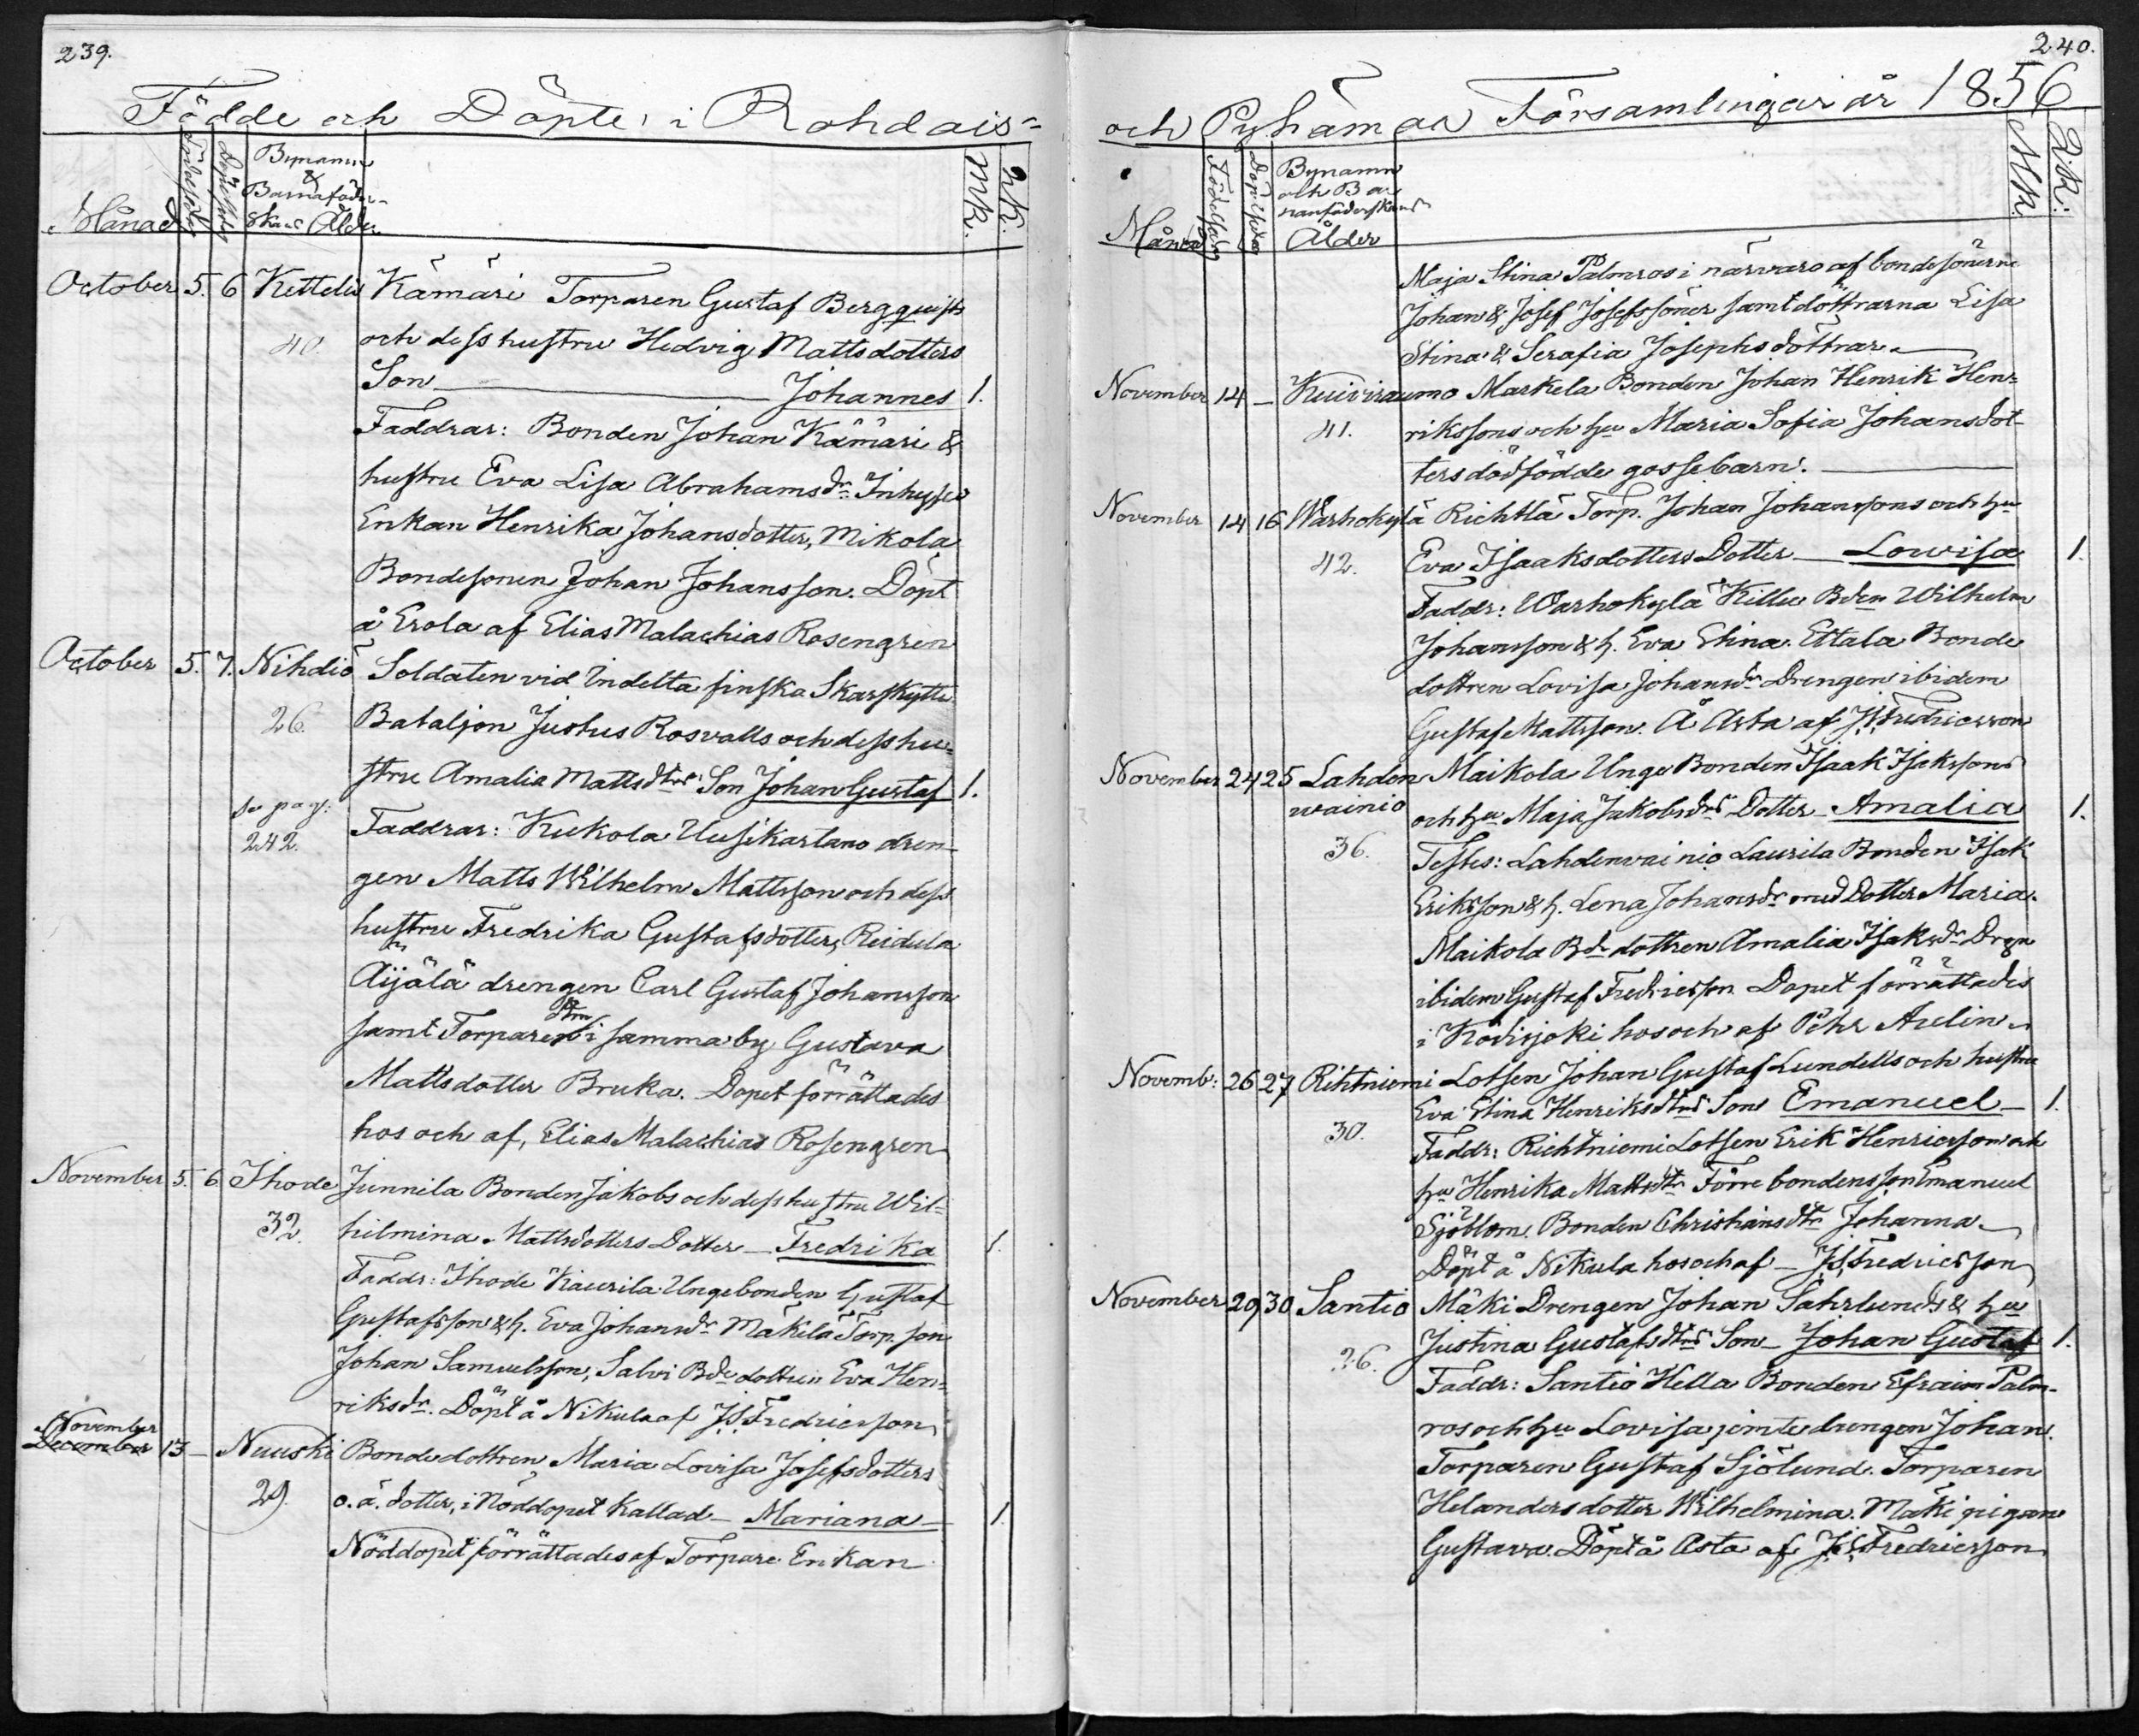 239.
Födde och Döpte i Rohdais=
Månad
Födelsedag
Döpelsedag
Bynamn
&
Barnaföder-
skans Ålder
MK.
QK.
October 5. 6 Kettelis Kämäri Torparen Gustaf Bergquists
40. och dess hustru Hedvig Mattsdotters
Son Johannes 1.
Faddrar: Bonden Johan Kämäri &
hustru Eva Lisa Abrahamsdr Inhyses
Enkan Henrika Johansdotter, Mikola
Bondesonen Johan Johansson. Döpt
å Erola af Elias Malachias Rosengren
October 5. 7. Nihdiö Soldaten vid Indelta finska Skarpskytte
26. Bataljon Justus Rosvalls och dess hu=
stru Amalia Mattsdtrs Son Johan Gustaf 1.
se pag:
242. Faddrar: Kukola Uusikartano dren-
gen Matts Wilhelm Mattsson och dess
hustru Fredrika Gustafsdotter, Reidula
Äijälä drengen Carl Gustaf Johansson
samt Torpare dtrn i samma by Gustava
Mattsdotter Bruka. Dopet förrättades
hos och af, Elias Malachias Rosengren
November 5. 6. Ihode Junnila Bonden Jakobs och dess hustru Wil=
32. helmina Mattsdotters Dotter Fredrika 1.
Faddr: Ihode Kaurila Ungebonden Gustaf
Gustafsson & h. Eva Johansdr Mäkilä Torp. son
Johan Samuelsson, Salvi Bde dottren Eva Hen=
riksdr. Döpt å Nikula af J.S. Fredricsson
November
December 13 – Nuuski Bondedottren Maria Lovisa Josefsdotters
29. o. ä. dotter, i Nöddopet kallad – Mariana – 1.
Nöddopet förrättades af Torpare Enkan
240.
och Pyhämaa Församlingar år 1856
Månad
Födelsedag
Döpelsedag
Bynamn
och Bar
nanföderskans
Ålder
MK.
QK:
Maja Stina Palmros i närvaro af bondesönerne
Johan & Josef Josefssöner samt döttrarna Lisa
Stina & Serafia Josephsdöttrar.
November 14 – Kuiviraumo Markela Bonden Johan Henrik Hen=
41. rikssons och hu Maria Sofia Johansdot-
ters dödfödde gossebarn.
November 14 16 Warhokylä Richtlä Torp. Johan Johanssons och hu
42. Eva Isaaksdotters Dotter Lowisa 1.
Faddr: Warhokylä Killu Bden Wilhelm
Johansson & h. Eva Stina. Ettala Bonde
dottren Lovisa Johansdr Drengen ibidem
Gustaf Mattsson. Å Asta af J.S. Fredricsson
November 24 25 Lahden Maikola Unge Bonden Isaak Isakssons
wainio och hu Maja Jakobsdrs Dotter Amalia 1.
36. Testes: Lahdenvainio Laurila Bonden Isak
Eriksson & h. Lena Johansdr med Dotter Maria.
Maikola Bde dottren Amalia Isaksdr Drgn
ibidem Gustaf Fredricsson Dopet förrättades
i Ködisjoki hos och af Pehr Aulin
Novemb: 26 27 Rihtniemi Lotsen Johan Gustaf Lundells och hustru
Eva Stina Henriksdtrs Son Emanuel 1.
30. Faddr: Richtniemi Lotsen Erik Henricsson och
hu Henrika Mattsdtr Förre bondens son Emanuel
Sjöblom. Bonden Christiansdtr Johanna
Döpt å Nikula hos och af – J.S. Fredricsson
November 29 30 Santio Mäki Drengen Johan Sahrlunds & hu
Justina Gustafsdtrs Son – Johan Gustaf 1.
26. Faddr: Santio Hella Bonden Efraim Palm-
ros och hu Lovisa, jemte drengen Johan.
Torparen Gustaf Sjölund. Torparen
Helanders dotter Wilhelmina. Mäki pigan
Gustava. Döpt å Asta af J.S. Fredricsson